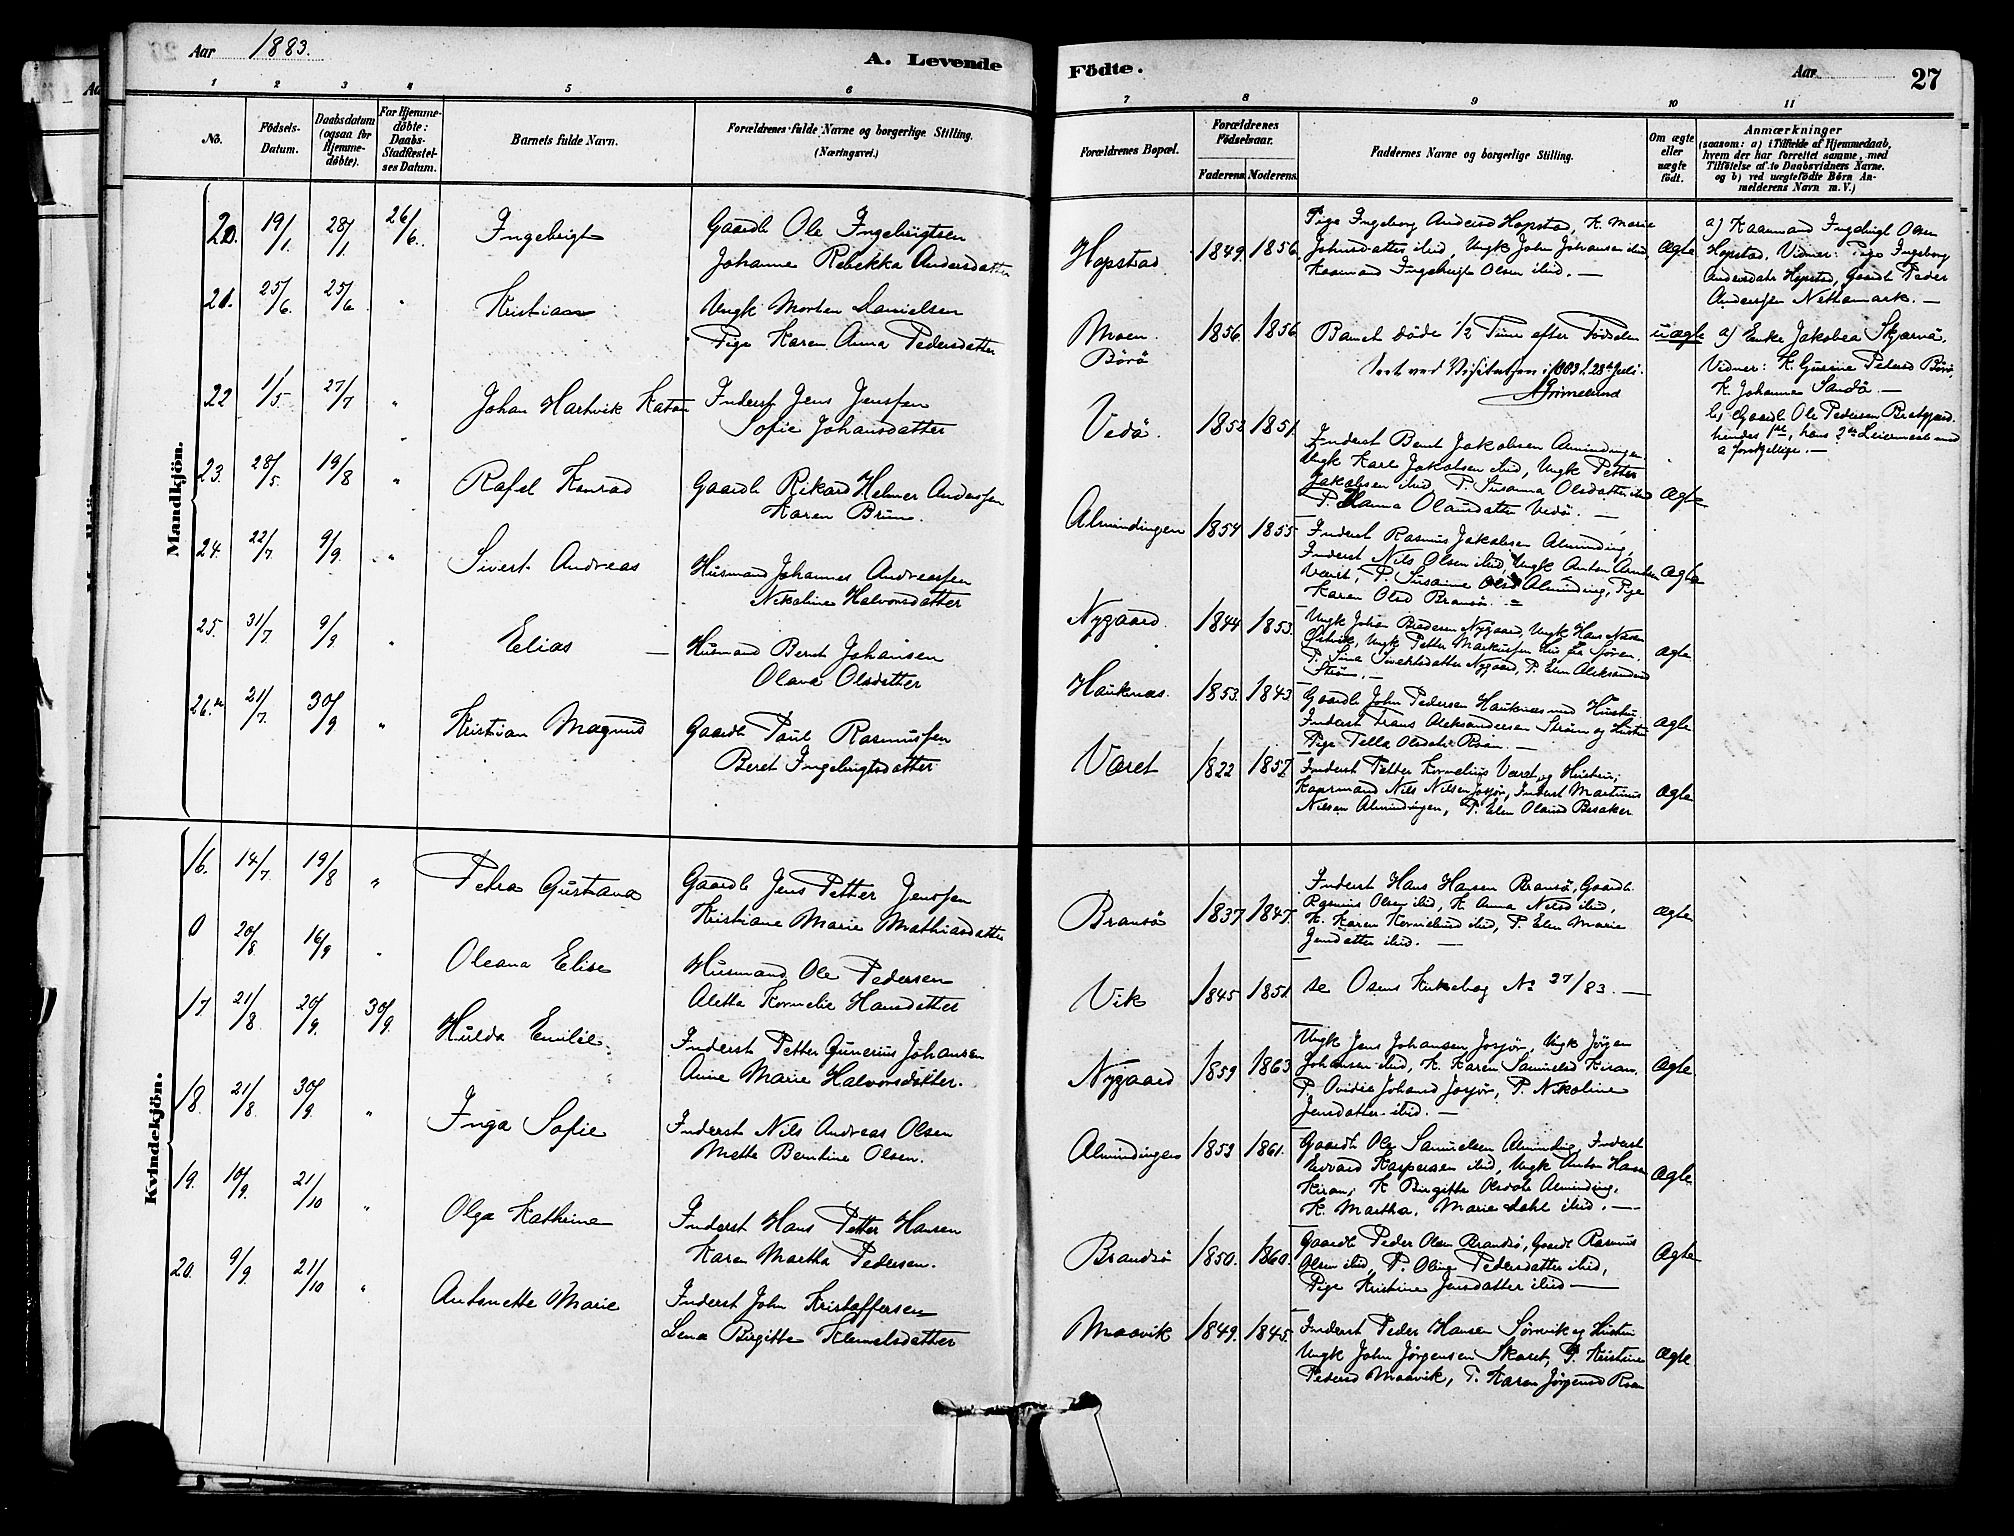 Aar 1883.
A. Levende
1 2 3 4 5 6
No.
Födsels-
Datum.
Daabsdatum
(ogsaa for
Hjemme-
döbte).
For Hjemme-
döbte:
Daabs-
Stadfæstel-
ses Datum.
Barnets fulde Navn.
Forældrenes fulde Navne og borgerlige Stilling.
(Næringsvei.)
Mandkjön.
20. 19/1. 28/1. 26/6. Ingebrigt Gaardb Ole Ingebrigtsen
Johanna Rebekka Andersdatter
21. 25/6. 25/6 " Kristian Ungk Morten Danielsen
Pige Karen Anna Pedersdatter
22 1/5. 27/7 " Johan Hartvik Katon Inderst Jens Jensen
Sofie Johansdatter
23. 28/5. 19/8 " Rafel Konrad Gaardb Rikard Helmer Andersen
Karen Bruun.
24. 22/7 9/9. " Sivert Andreas Husmand Johannes Andreassen
Nikoline Halvorsdatter
25. 31/7. 9/9. " Elias Husmand Bernt Johansen
Olava Olsdatter
26. 21/7. 30/9 " Kristian Magnus Gaardb Paul Rasmussen
Beret Ingebrigtsdatter
Kvindekjön.
16. 14/7. 19/8 " Petra Gustava Gaardb Jens Petter Jensen
Kristiane Marie Mathiasdatter
0 20/8 16/9 " Oleana Elise Husmand Ole Pedersen
Aletta Kornelie Hansdatter
17 21/8. 20/9. 30/9. Hulda Emilie Inderst Petter Gunerius Johansen
Anne Marie Halvorsdatter.
18. 21/8. 30/9. " Inga Sofie Inderst Nils Andreas Olsen
Mette Berntine Olsen.
19. 10/9. 21/10 " Olga Kathrine Inderst Hans Petter Hansen
Karen Martha Pedersen.
20. 9/9 21/10 " Antonette Marie Inderst John Kristoffersen
Lena Birgitte Klemetsdatter
Födte.
Aar
27
7 8 9 10 11
Forældrenes Bopæl.
Forældrenes
Födselsaar.
Faderens. Moderens.
Faddernes Navne og borgerlige Stilling.
Om ægte
eller
uægte
födt.
Anmærkninger
(saasom: a) i Tilfælde af Hjemmedaab,
hvem der har forrettet samme, med
Tilföielse af to Daabsvidners Navne.
og b) ved uægtefödte Börn An-
melderens Navn m.V.)
Hopstad 1849. 1856. Pige Ingeborg Andersd Hopstad, K. Marie
Johnsdatter ibid, Ungk John Johansen ibid,
Kaarmand Ingebrigt Olsen ibid. — Ægte
a) Kaarmand Ingebrigt Olsen
Hopstad. Vidner: Pige Ingeborg
Andersdatr Hopstad, Gaardb Peder
Andersen Nettamark. —
Moen 1856. 1856. Barnet døde 1/2 Time efter Fødselen uægte
Börö
a) Enke Jakobea Skjærvö.
Vidner: K. Gurine Pedersd Börö,
K. Johanna Sandö. —
b) Gaardb Ole Pedersen Bratgjærd
hendes 1ste, hans 2det Leiermaal med
a forskjellige. —
Seet ved Visitatsen i 1883 d. 28de Juli.
Grimelund
Vedö. 1852 1851. Inderst Bernt Jakobsen Almindingen
Ungk Karl Jakobsen ibid, Ungk Petter
Jakobsen ibid, P. Susanna Olsdatter ibid Ægte
P. Hanna Olausdatter Vedö. —
Almindingen 1854 1855. Inderst Rasmus Jakobsen Alminding,
Inderst Nils Olsen ibid, Ungk Anton Arntsen Ægte
Været, P. Susanne Olsd Alminding, Pige
Karen Olsd Bransö. —
Nygaard. 1844 1853. Ungk Johan Nygaard, Ungk Hans
Ungk Petter
P. Nygaard, P. Elen Aleksandersd
Strøm. — Ægte
Hauknes. 1853. 1843. Gaardb John Pedersen Hauknes med Hustru
Inderst Frans Aleksandersen Strøm og Hustru
Pige Olsdatr Roan. — Ægte
Været 1822 1857. Inderst Petter Kornelius Været og Hustru,
Kaarmand Nils Nilsen Jøssjør, Inderst Martinus
Nilsen Almindingen, P. Elen Olausd Besaker Ægte
Bransö 1837. 1847. Inderst Hans Hansen Bransö, Gaardb.
Rasmus Olsen ibid, K. Anna Nilsd ibid,
K. Karen Korneliusd ibid, P. Elen Marie
Jensdatter ibid. — Ægte
Vik 1845 1851. se Osens Kirkebog No 27/83. —
Nygaard 1859 1863 Ungk Jens Johansen Jøssjør, Ungk Jørgen
Johansen ibid, K. Karen Samuelsd Kiran. Ægte
P. Ovidie Johansd Jøssjør, P. Nikoline
Jensdatter ibid. —
Almindingen 1853 1861. Gaardb Ole Samuelsen Alminding, Inderst
Edvard Kaspersen ibid, Ungk Anton Hansen Ægte
Kiran, K Birgitte Olsdatr Alminding.
K. Martha Marie Dahl ibid. —
Brandsö 1850. 1860. Gaardb Peder Olsen Brandsö, Gaardb Rasmus Ægte
Olsen ibid, P. Oline Pedersdatter ibid,
Pige Kristine Jensdatter ibid —
Maavik 1849. 1845. Inderst Peder Hansen Sörvik og Hustru
Ungk John Jørgensen Skaret, P. Kristine Ægte
Pedersd Maavik, P. Karen Jørgensd Roan